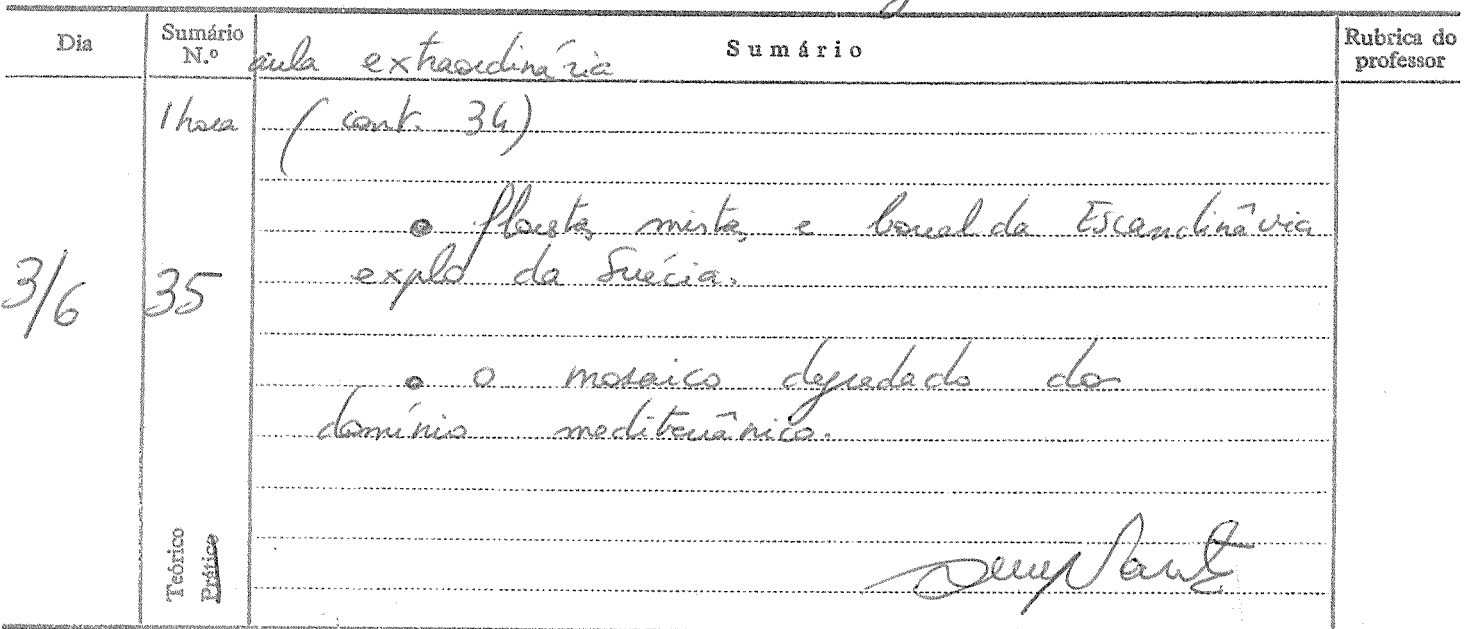 Dia Sumário N.º Sumário Rubrica do professor
aula extraordinária
1 hora (cont. 34)
• floresta mista e boreal da Escandinávia
explo da Suécia.
3/6 35
• o mosaico degradado do
domínio mediterrânico.
Teórico
Prático